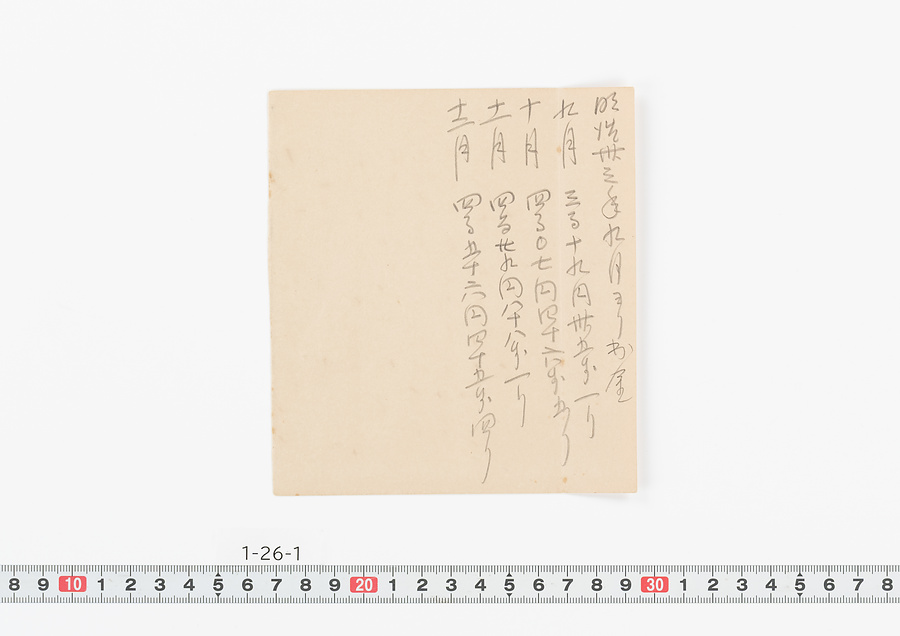 明治卅三年九月ヨリ出金
九月 三百十九円卅五銭一リ
十月 四百〇七円四十六銭五リ
十一月 四百廿九円八十八銭一リ
十二月 四百五十六円四十五銭四リ
1-26-1
8 9 10 1 2 3 4 5 6 7 8 9 20 1 2 3 4 5 6 7 8 9 30 1 2 3 4 5 6 7 8